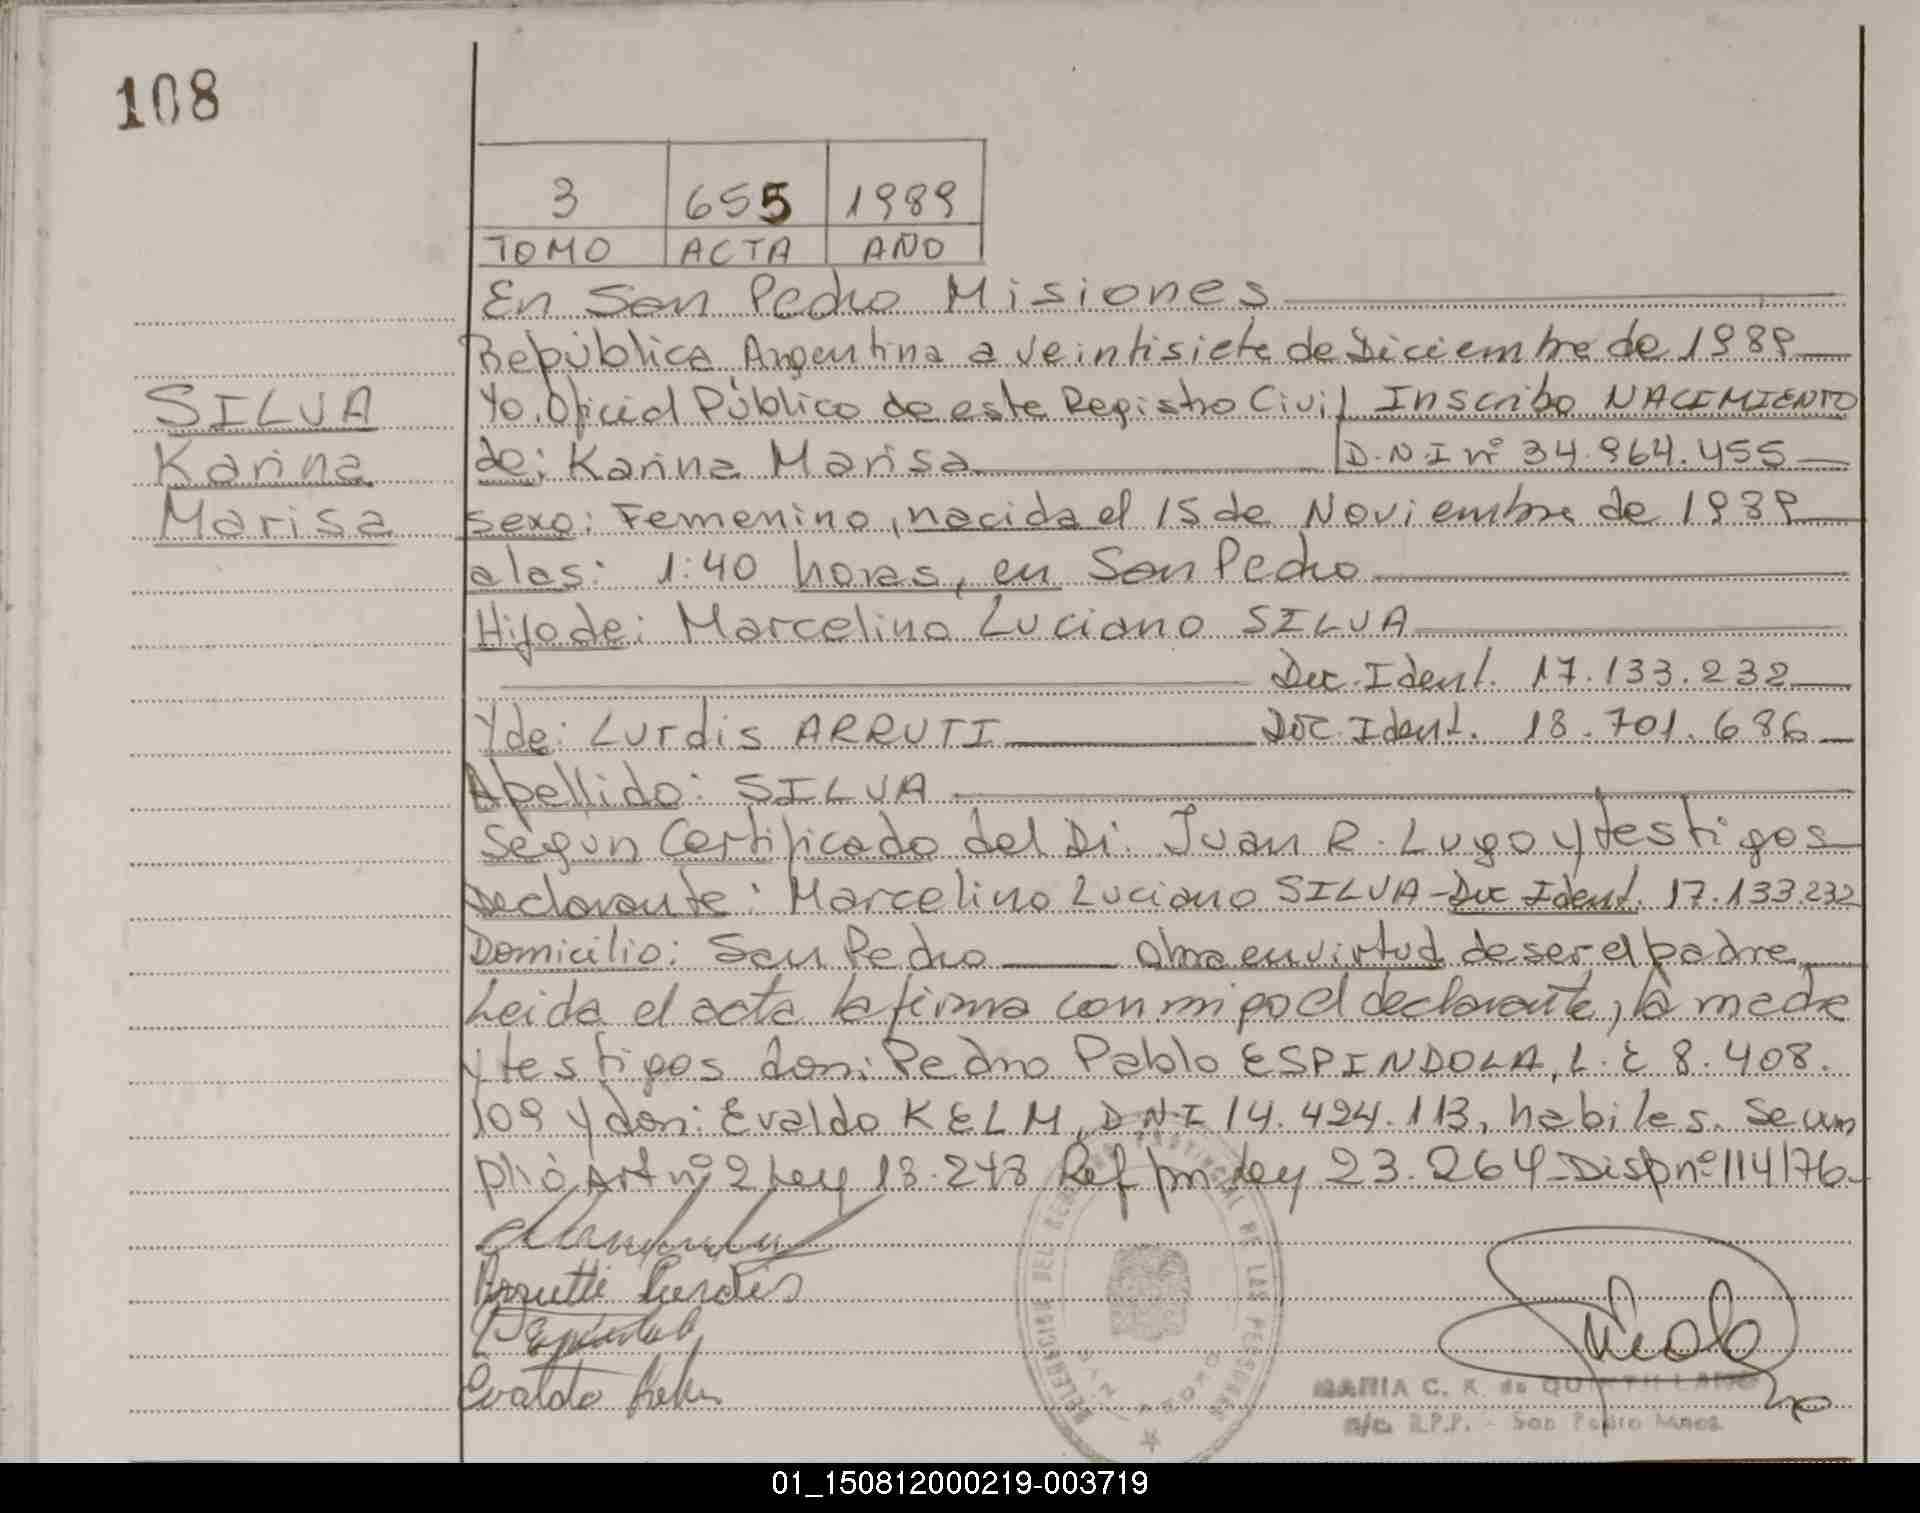 108
3 655 1989
TOMO ACTA AÑO
En San Pedro Misiones
República Argentina a veintisiete de Diciembre de 1989
SILVA
Karina
Marisa
Yo. Oficial Público de este Registro Civil Inscribo NACIMIENTO
de: Karina Marisa D.N.I nº 34.964.455
sexo: Femenino, nacida el 15 de Noviembre de 1989
a las: 1:40 horas, en San Pedro
Hijo de: Marcelino Luciano SILVA
Doc. Ident. 17.133.232
Y de: Lurdis ARRUTI Doc. Ident. 18.701.686
Apellido: SILVA
Según Certificado del Dr. Juan R. Lugo y testigos
Declarante: Marcelino Luciano SILVA - Doc Ident. 17.133.232
Domicilio: San Pedro obra en virtud de ser el padre
Leida el acta la firma conmigo el declarante, la madre
y testigos don: Pedro Pablo ESPINDOLA, L.E 8.408.
109 y don: Evaldo KELM, D.N.I 14.494.113, habiles. Se cum
plió Art nº 2 Ley 18.248 Ref por Ley 23.264 - Disp nº 114/76
Arrutti Lurdis
Evaldo Kelm
DELEGACION DEL REGISTRO PROVINCIAL DE LAS PERSONAS
MARIA C. K. de
n/c R.P.P. - San Pedro Mnes
01_150812000219-003719